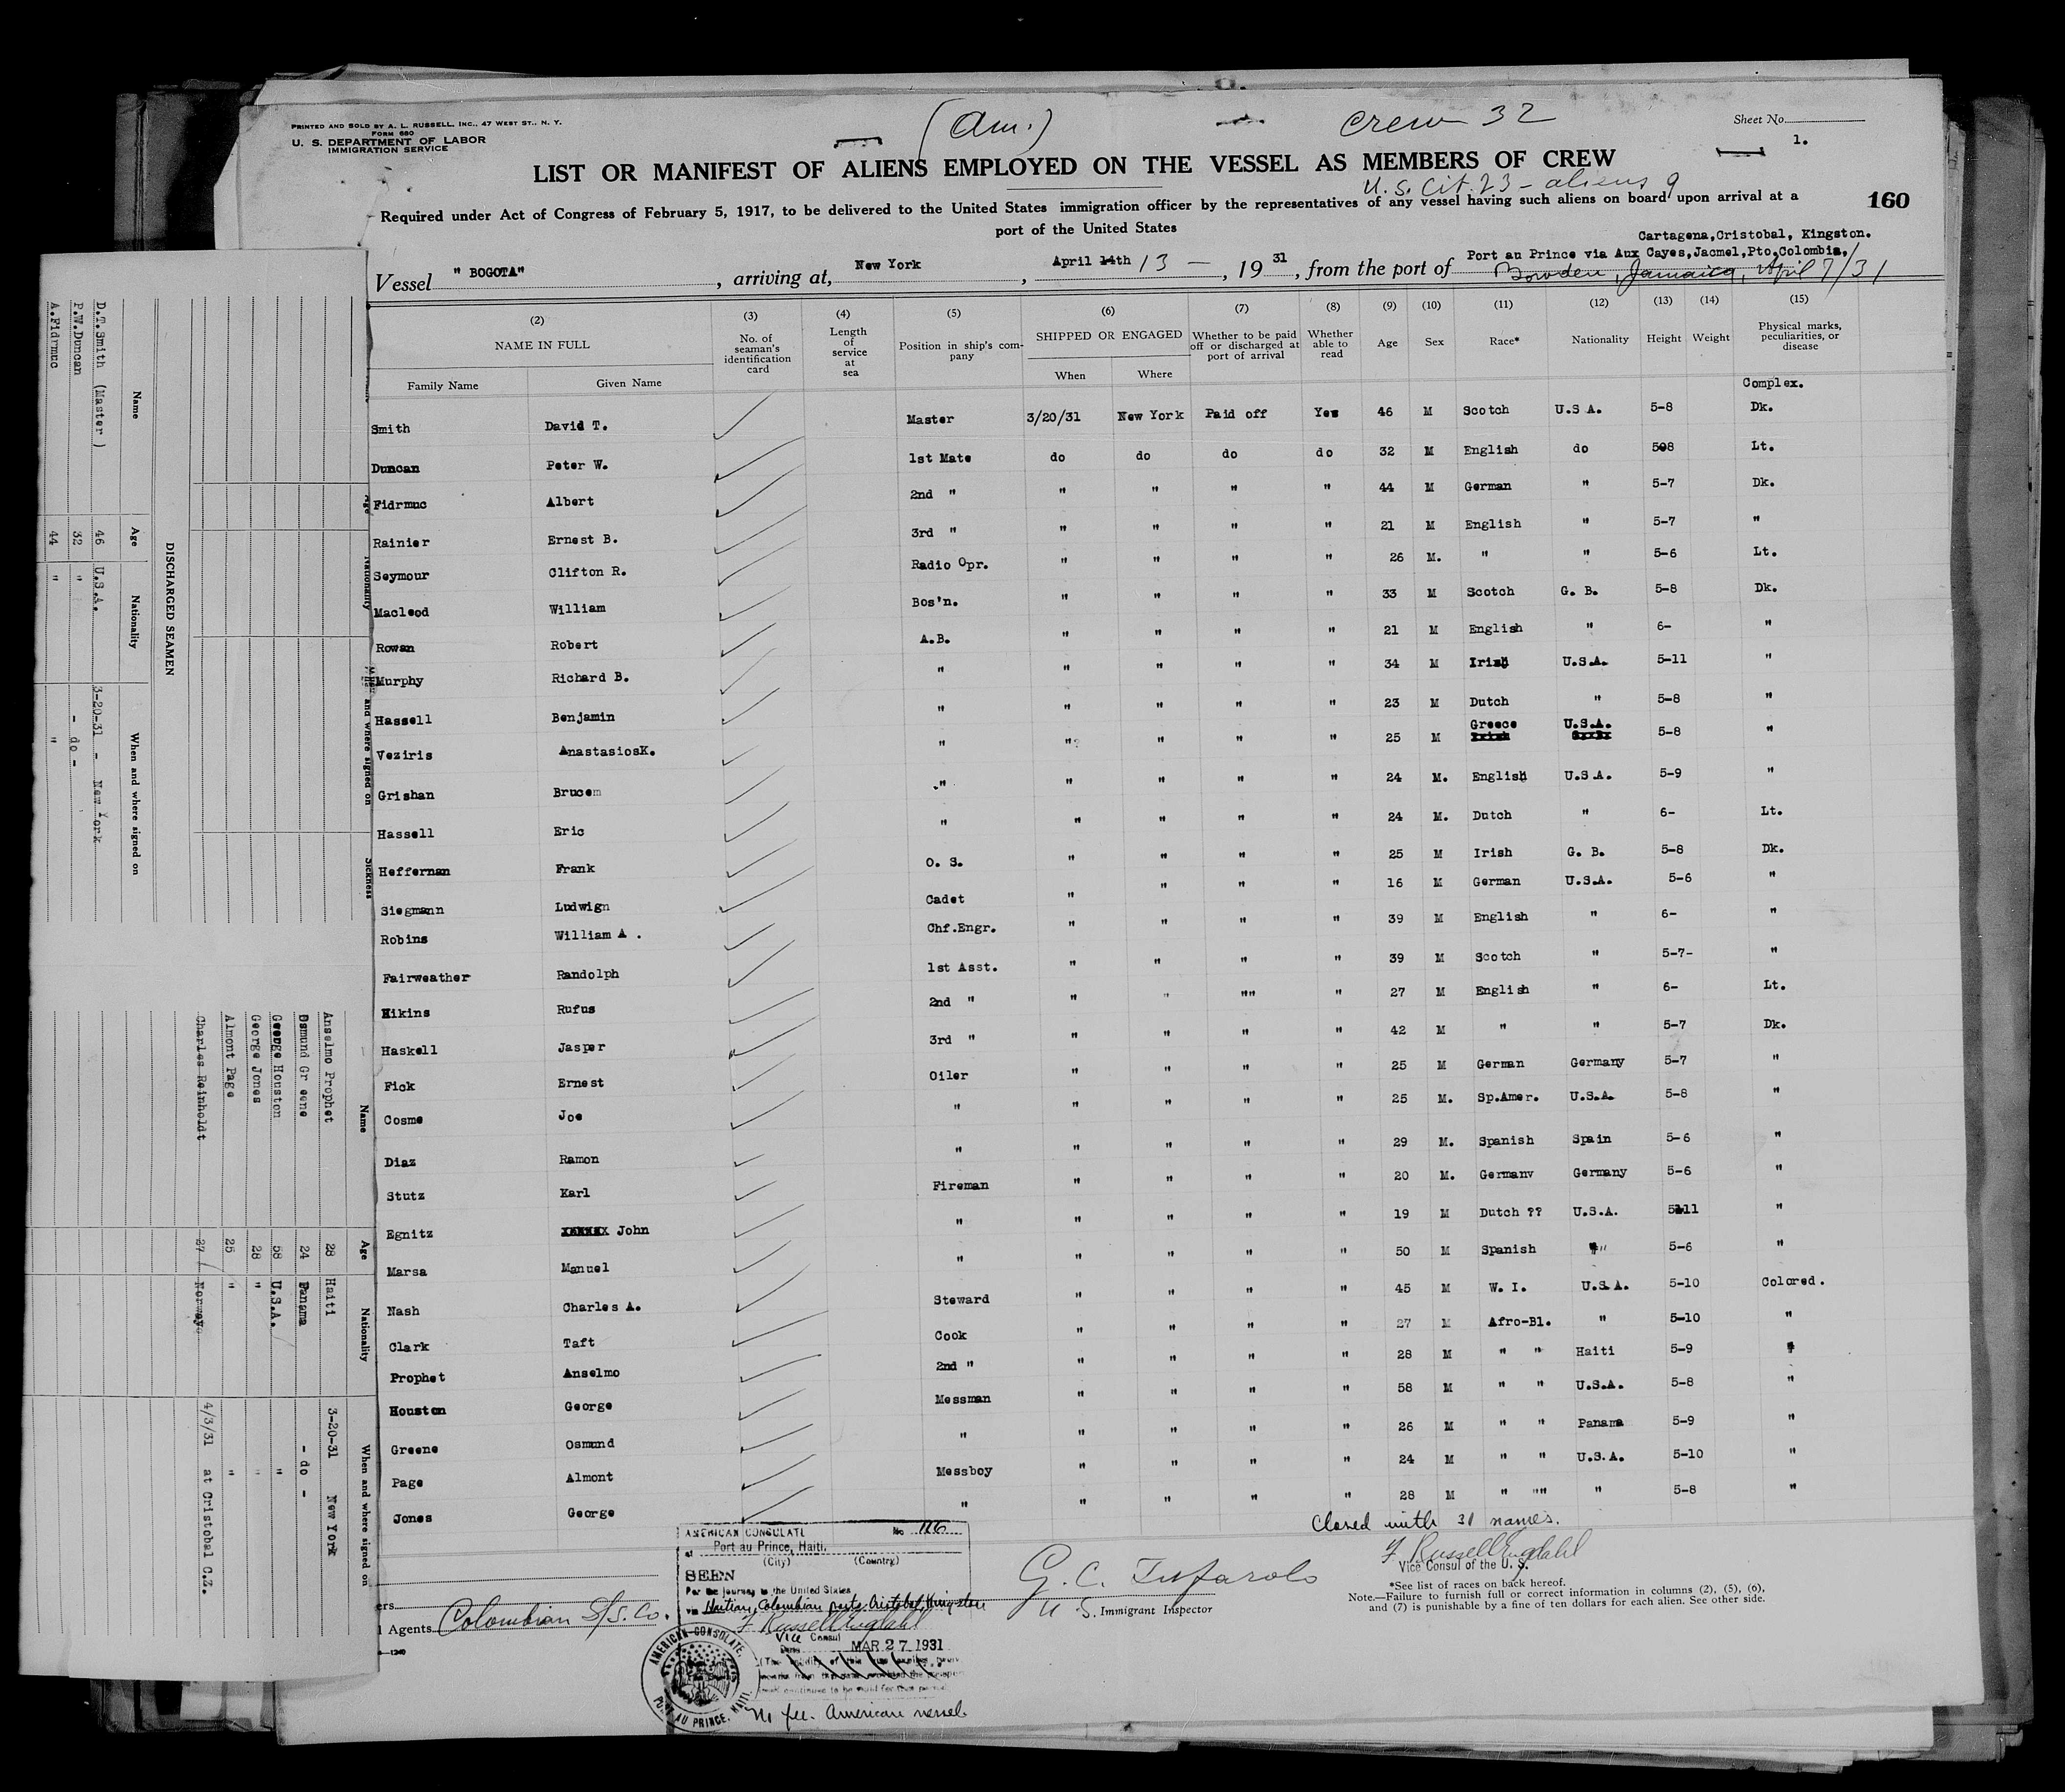 PRINTED AND SOLD BY A. L. RUSSELL, INC., 47 WEST ST., N. Y.
FORM 680
U. S. DEPARTMENT OF LABOR
IMMIGRATION SERVICE
(Am.)
Crew 32
Sheet No.
1.
LIST OR MANIFEST OF ALIENS EMPLOYED ON THE VESSEL AS MEMBERS OF CREW
U.S. Cit. 23 - aliens 9
Required under Act of Congress of February 5, 1917, to be delivered to the United States immigration officer by the representatives of any vessel having such aliens on board upon arrival at a
port of the United States
160
Cartagena,Cristobal, Kingston.
Vessel " BOGOTA" , arriving at, New York , April 14th 13 - , 19 31 , from the port of Port au Prince via Aux Cayes,Jacmel,Pto.Colombia,
Bowden, Jamaica, April 7/31
(2) (3) (4) (5) (6) (7) (8) (9) (10) (11) (12) (13) (14) (15)
NAME IN FULL No. of seaman's identification card Length of service at sea Position in ship's company SHIPPED OR ENGAGED Whether to be paid off or discharged at port of arrival Whether able to read Age Sex Race* Nationality Height Weight Physical marks, peculiarities, or disease
Family Name Given Name When Where
Complex.
Smith David T. Master 3/20/31 New York Paid off Yes 46 M Scotch U.S A. 5-8 Dk.
Duncan Peter W. 1st Mate do do do do 32 M English do 508 Lt.
Fidrmuc Albert 2nd " " " " " 44 M German " 5-7 Dk.
Rainier Ernest B. 3rd " " " " " 21 M English " 5-7 "
Seymour Clifton R. Radio Opr. " " " " 26 M. " " 5-6 Lt.
Macleod William Bos'n. " " " " 33 M Scotch G. B. 5-8 Dk.
Rowan Robert A.B. " " " " 21 M English " 6- "
Murphy Richard B. " " " " " 34 M Irish U.S.A. 5-11 "
Hassell Benjamin " " " " " 23 M Dutch " 5-8 "
Veziris AnastasiosK. " " " " " 25 M Greece U.S.A. 5-8 "
Grishan Brucem " " " " " 24 M. English U.S.A. 5-9 "
Hassell Eric " " " " " 24 M. Dutch " 6- Lt.
Heffernan Frank O. S. " " " " 25 M Irish G. B. 5-8 Dk.
Siegmann Ludwign Cadet " " " " 16 M German U.S.A. 5-6 "
Robins William A . Chf.Engr. " " " " 39 M English " 6- "
Fairweather Randolph 1st Asst. " " " " 39 M Scotch " 5-7- "
Hikins Rufus 2nd " " " "" " 27 M English " 6- Lt.
Haskell Jasper 3rd " " " " " 42 M " " 5-7 Dk.
Fick Ernest Oiler " " " " 25 M German Germany 5-7 "
Cosme Joe " " " " " 25 M. Sp.Amer. U.S.A. 5-8 "
Diaz Ramon " " " " " 29 M. Spanish Spain 5-6 "
Stutz Karl Fireman " " " " 20 M. Germanv Germany 5-6 "
Egnitz John " " " " " 19 M Dutch ?? U.S.A. 5-11 "
Marsa Manuel " " " " " 50 M Spanish " 5-6 "
Nash Charles A. Steward " " " " 45 M W. I. U.S.A. 5-10 Colored.
Clark Taft Cook " " " " 27 M Afro-Bl. " 5-10 "
Prophet Anselmo 2nd " " " " " 28 M " " Haiti 5-9 "
Houston George Messman " " " " 58 M " " U.S.A. 5-8 "
Greene Osmund " " " " " 26 M " " Panama 5-9 "
Page Almont Messboy " " " " 24 M " " U.S.A. 5-10 "
Jones George " " " " " 28 M " "" " 5-8 "
Closed with 31 names.
F Russell Engdahl
Vice Consul of the U. S.
*See list of races on back hereof.
Note.—Failure to furnish full or correct information in columns (2), (5), (6),
and (7) is punishable by a fine of ten dollars for each alien. See other side.
U. S. Immigrant Inspector
ers
Agents Colombian S/S. Co.
AMERICAN CONSULATE No 116
at Port au Prince, Haiti.
(City) (Country)
SEEN
For the journey to the United States
via Haitian, Colombian ports, Cristobal, Kingston
F Russell Engdahl
Vice Consul
Date MAR 27 1931
AMERICAN CONSULATE, PORT AU PRINCE, HAITI.
No fee. American vessel.
DISCHARGED SEAMEN
Name Age Nationality When and where signed on
D.T.Smith (Master ) 46 U.S.A. 3-20-31 - New York
P.W.Duncan 32 " - do -
A.Fidrmuc 44 " "
Sickness
Name Age Nationality When and where signed on
Anselmo Prophet 28 Haiti 3-20-31 New York
Osmund Gr eene 24 Panama - do -
George Houston 58 U.S.A. "
George Jones 28 " "
Almont Page 25 " "
Charles Reinholdt 27 Norway 4/3/31 at Cristobal C.Z.